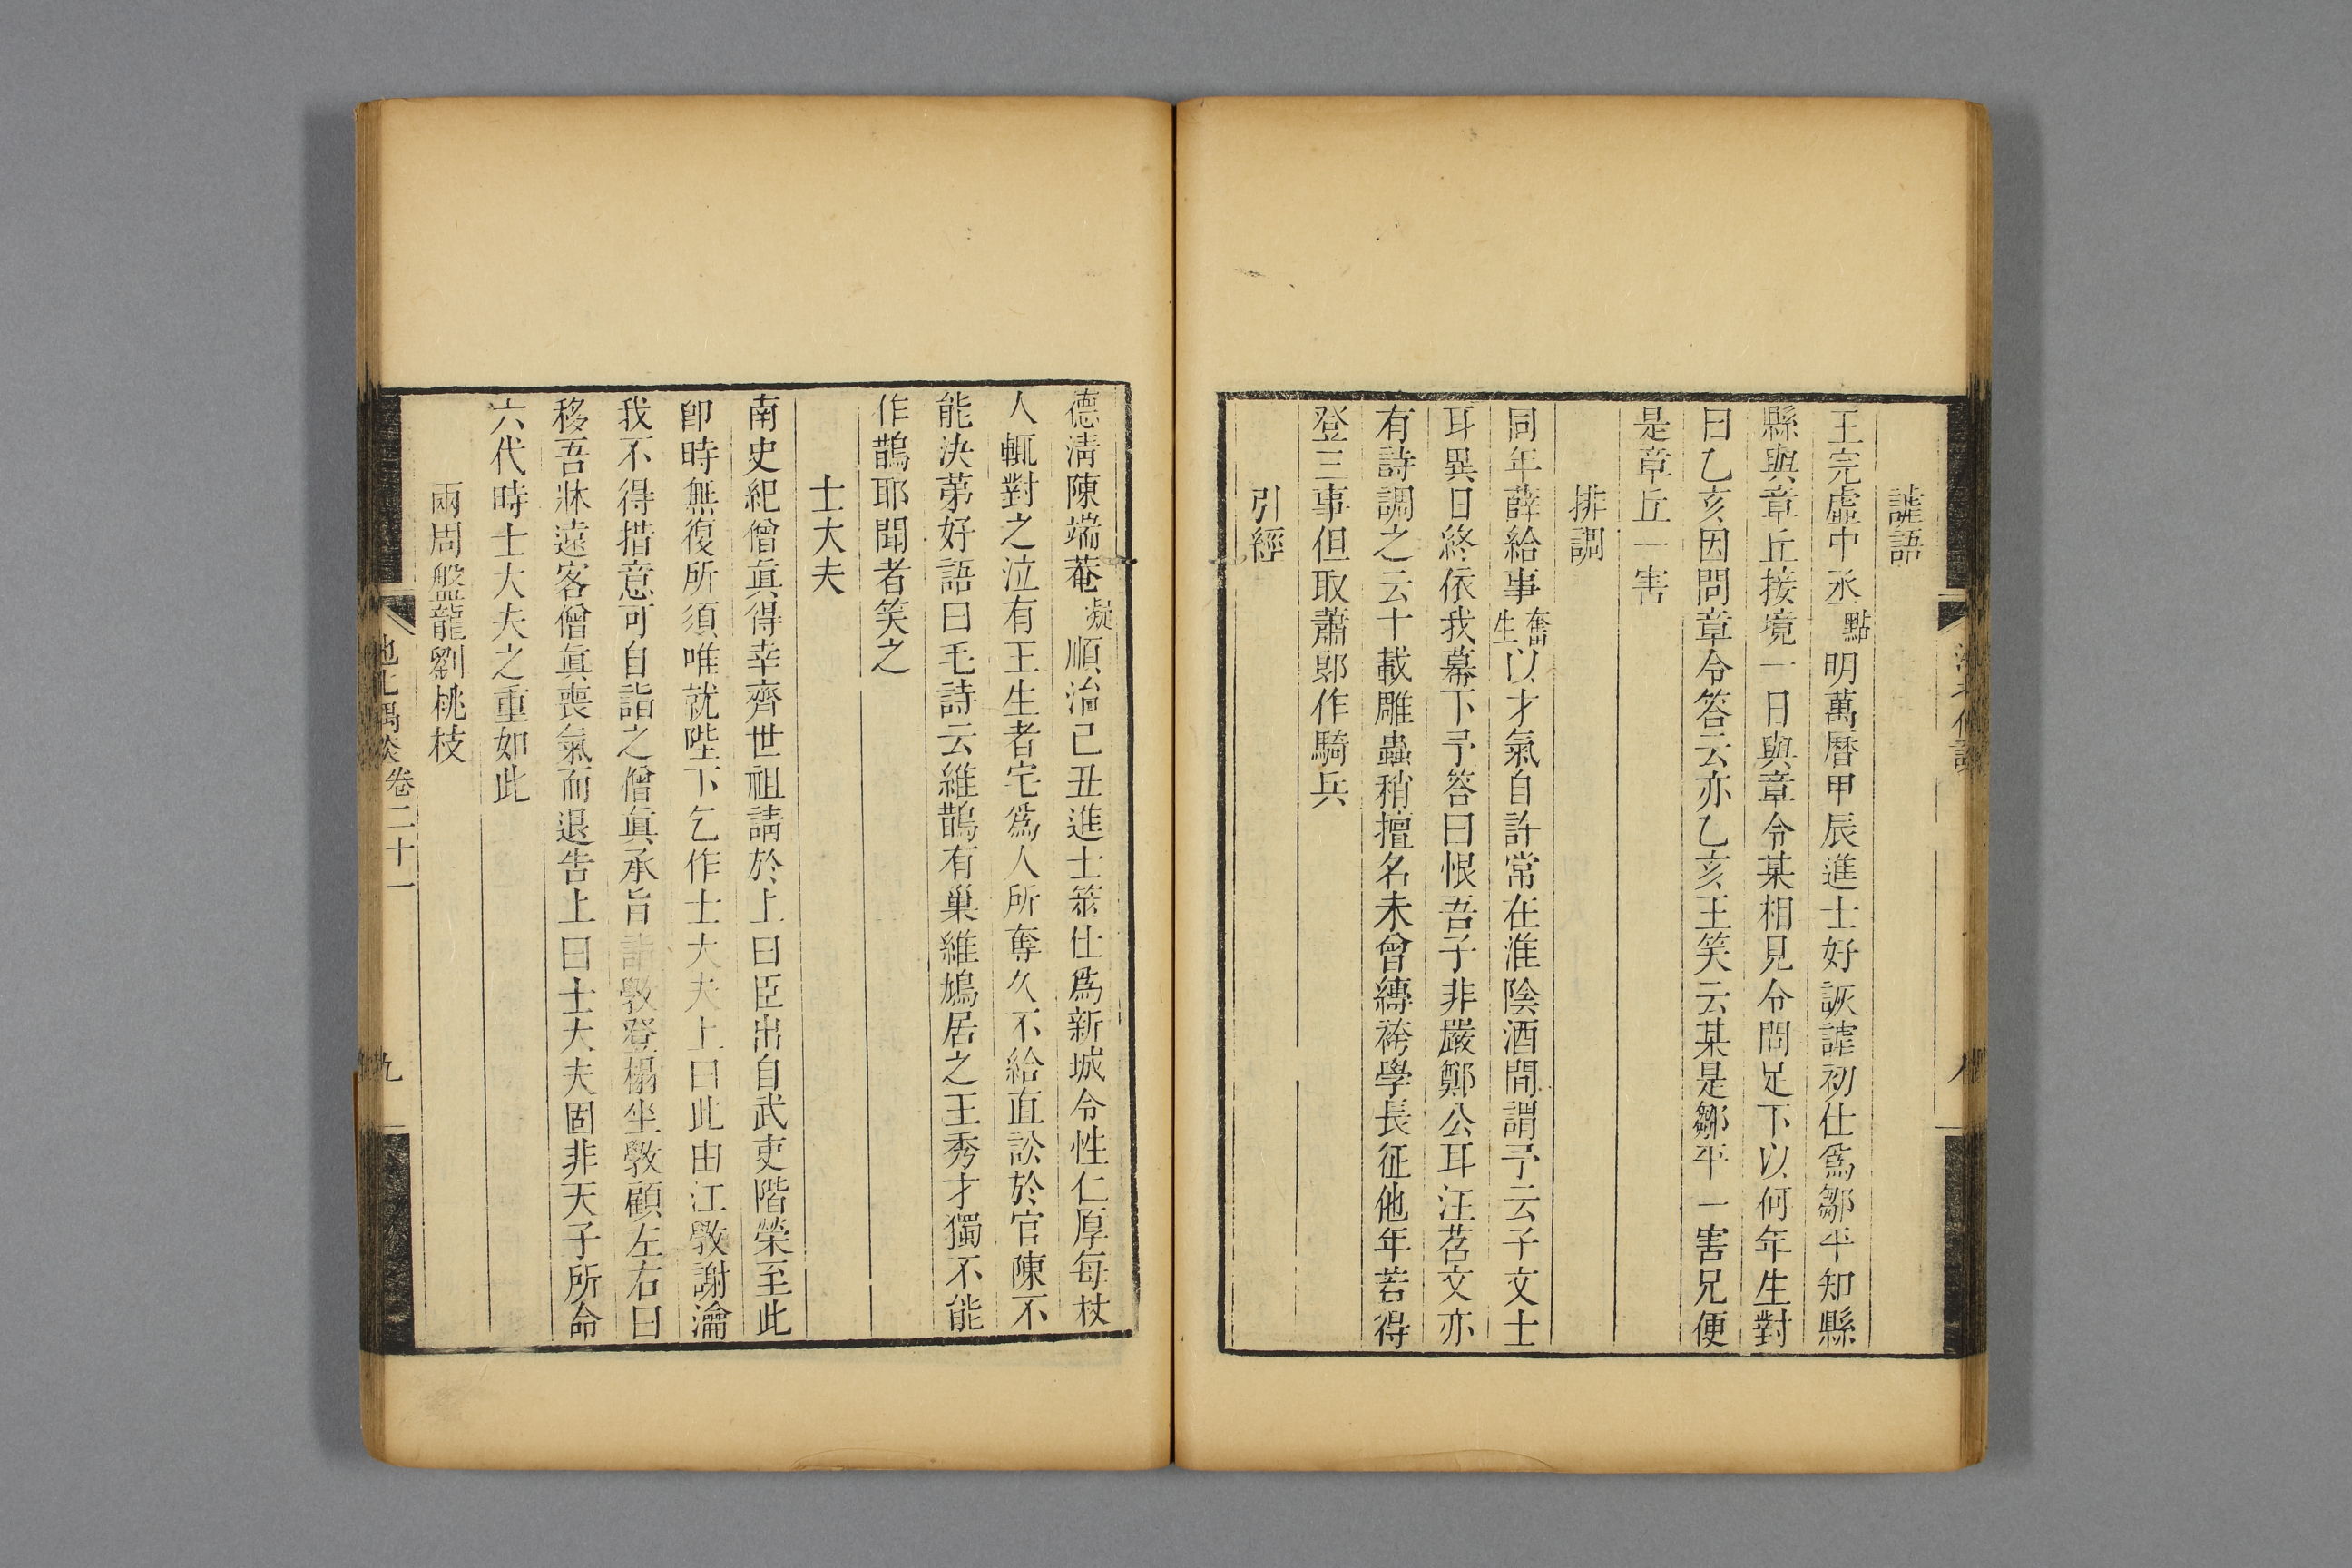 謔語
王完虛中丞點明萬曆甲辰進士好詼謔初仕爲鄒平知縣
縣與章丘接境一日與章令某相見令問足下以何年生對
曰乙亥因問章令答云亦乙亥王笑云某是鄒平一害兄便
是章丘一害
排調
同年薛給事奮生以才氣自許常在淮陰酒間謂予云子文士
耳異日終依我幕下予答曰恨吾子非嚴鄭公耳汪苕文亦
有詩調之云十載雕蟲稍擅名未曾縳袴學長征他年若得
登三事但取蕭郎作騎兵
引經
德清陳端菴凝順治己丑進士筮仕爲新城令性仁厚每杖
人輒對之泣有王生者宅爲人所奪久不給直訟於官陳不
能決第好語曰毛詩云維鵲有巢維鳩居之王秀才獨不能
作鵲耶聞者笑之
士大夫
南史紀僧眞得幸齊世祖請於上曰臣出自武吏階榮至此
卽時無復所須唯就陛下乞作士大夫上曰此由江斆謝瀹
我不得措意可自詣之僧眞承旨詣斆登榻坐斆顧左右曰
移吾牀遠客僧眞喪氣而退告上曰士大夫固非天子所命
六代時士大夫之重如此
兩周盤龍劉桃枝
池北偶談 卷二十一 九